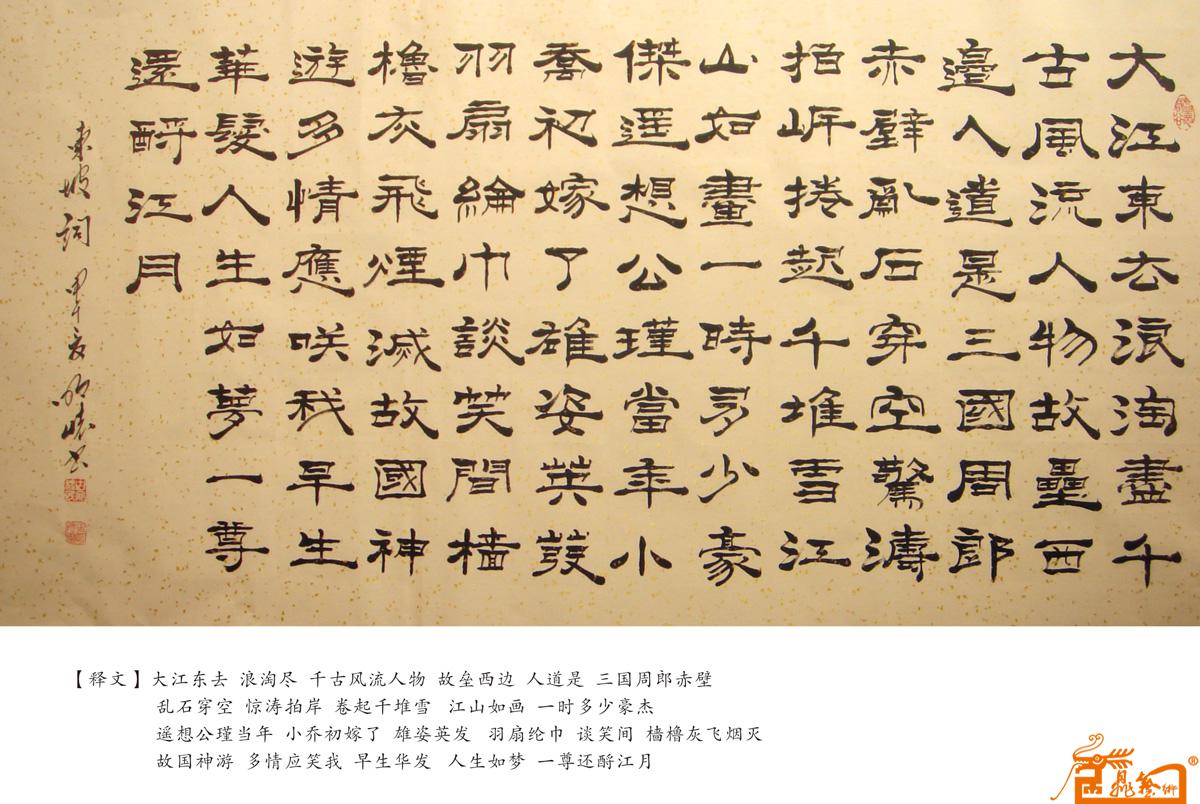 大江東去浪淘盡千
古風流人物故壘西
邊人道是三國周郎
赤壁亂石穿空驚濤
拍岸捲起千堆雪江
山如畫一時多少豪
傑遥想公瑾當年小
喬初嫁了雄姿英發
羽扇綸巾談笑間檣
櫓灰飛煙滅故國神
遊多情應咲我早生
華髮人生如夢一尊
還酹江月
東坡詞 甲午夏
【释文】大江东去 浪淘尽 千古风流人物 故垒西边 人道是 三国周郎赤壁
乱石穿空 惊涛拍岸 卷起千堆雪 江山如画 一时多少豪杰
遥想公瑾当年 小乔初嫁了 雄姿英发 羽扇纶巾 谈笑间 樯橹灰飞烟灭
故国神游 多情应笑我 早生华发 人生如梦 一尊还酹江月